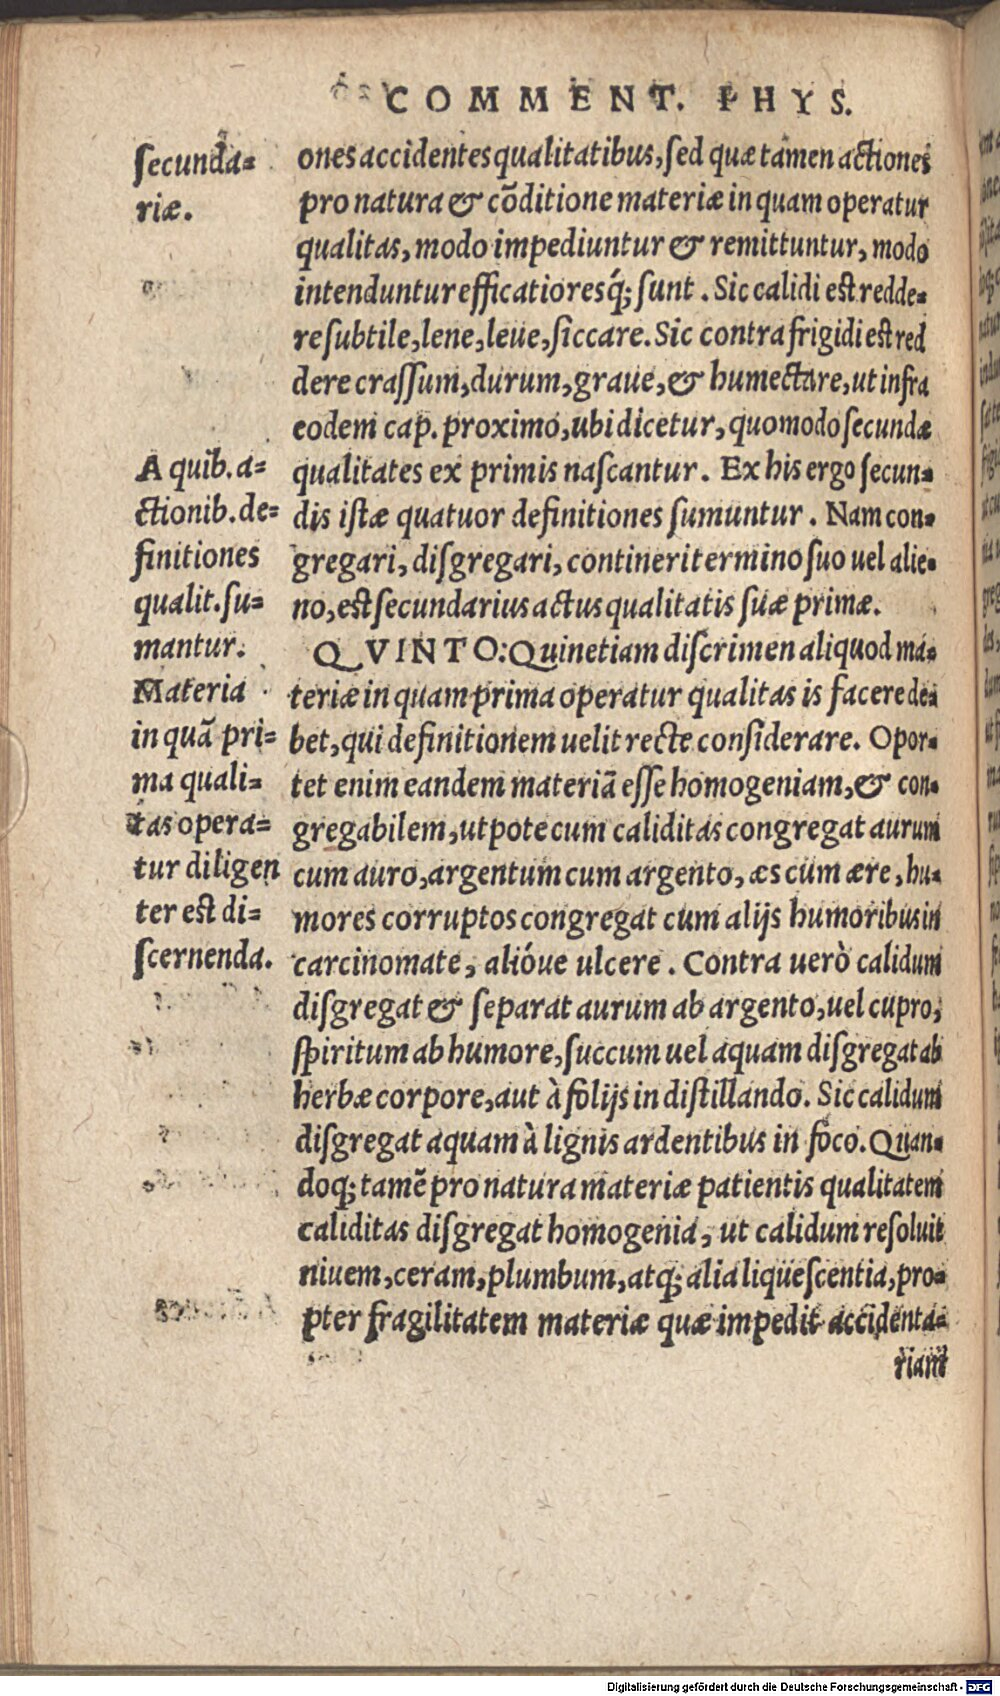 COMMENT. PHYS.
ſecunda=
riæ.
ones accidentes qualitatibus, ſed quæ tamen actiones
pro natura & cõditione materiæ in quam operatur
qualitas, modo impediuntur & remittuntur, modo
intenduntur efficatioresq́; ſunt . Sic calidi eſt redde=
re ſubtile, lene, leue, ſiccare. Sic contra frigidi eſt red
dere craſſum, durum, graue, & humectare, ut infra
eodem cap. proximo, ubi dicetur, quomodo ſecundæ
qualitates ex primis naſcantur . Ex his ergo ſecun=
dis iſtæ quatuor definitiones ſumuntur . Nam con=
gregari, diſgregari, contineri termino ſuo uel alie=
no, eſt ſecundarius actus qualitatis ſuæ primæ.
A quib. a=
ctionib. de=
finitiones
qualit. ſu=
mantur.
QVINTO: Quinetiam diſcrimen aliquod ma=
teriæ in quam prima operatur qualitas is facere de=
bet, qui definitionem uelit recte conſiderare. Opor=
tet enim eandem materiã eſſe homogeniam, & con=
gregabilem, utpote cum caliditas congregat aurum
cum auro, argentum cum argento, æs cum ære, hu=
mores corruptos congregat cum alijs humoribus in
carcinomate, alióue ulcere . Contra uerò calidum
diſgregat & ſeparat aurum ab argento, uel cupro,
ſpiritum ab humore, ſuccum uel aquam diſgregat ab
herbæ corpore, aut à folijs in diſtillando. Sic calidum
diſgregat aquam à lignis ardentibus in foco. Quan=
doq; tamẽ pro natura materiæ patientis qualitatem
caliditas diſgregat homogenia, ut calidum reſoluit
niuem, ceram, plumbum, atq; alia liqueſcentia, pro=
pter fragilitatem materiæ quæ impedit accidenta=
Materia
in quã pri=
ma quali=
tas opera=
tur diligen
ter eſt di=
ſcernenda.
riam
Digitalisierung gefördert durch die Deutsche Forschungsgemeinschaft - DFG